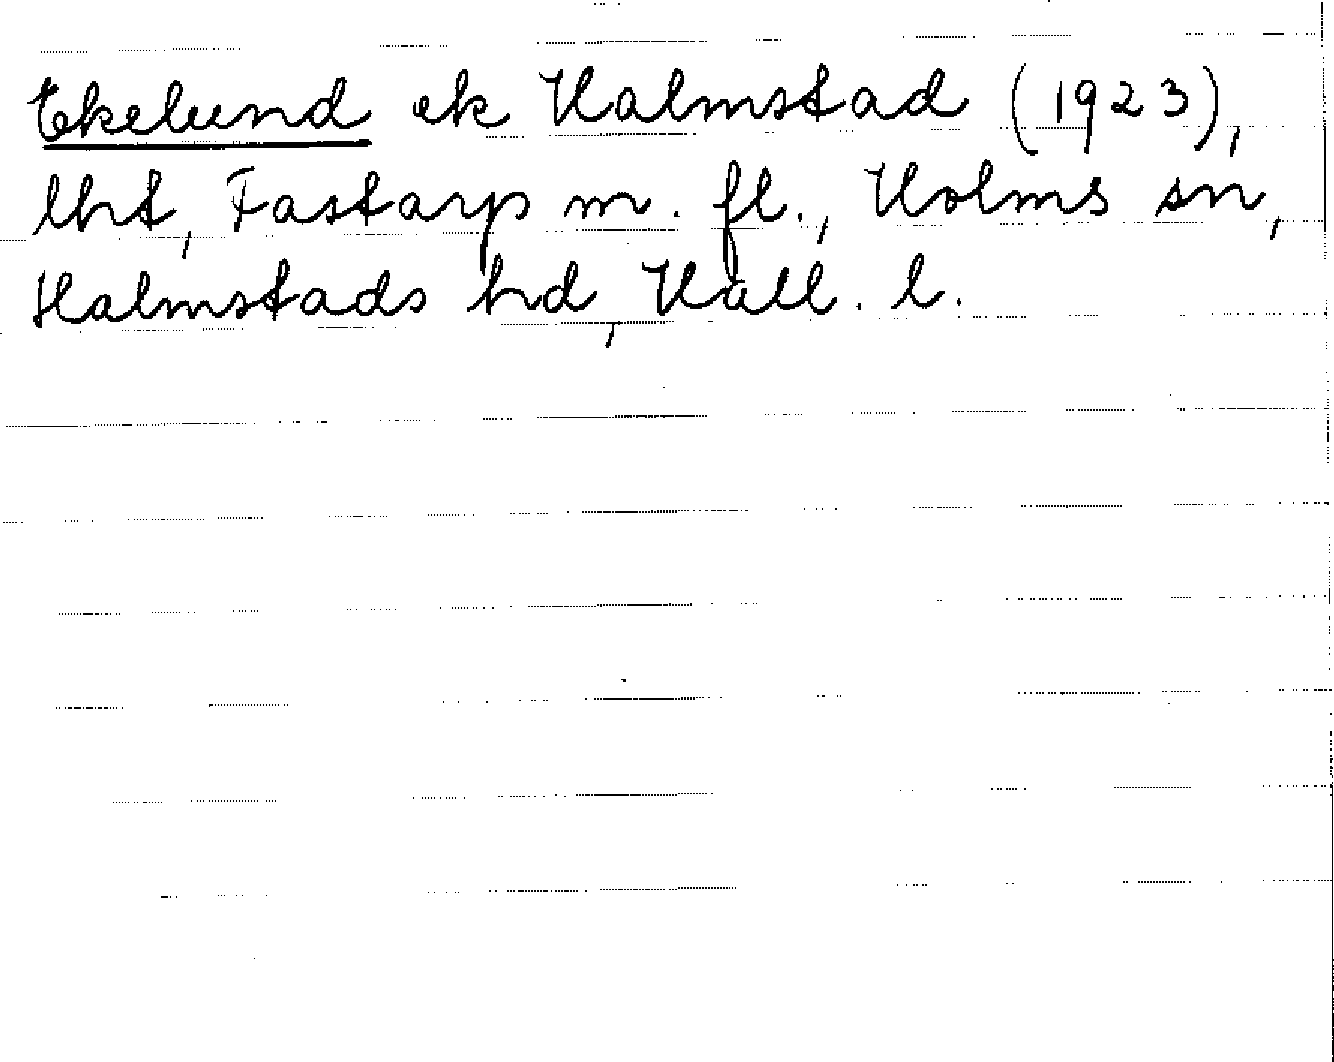 Ekelund ek Halmstad (1923),
lht, Fastarp m. fl., Holms sn,
Halmstads hd, Hall. l.